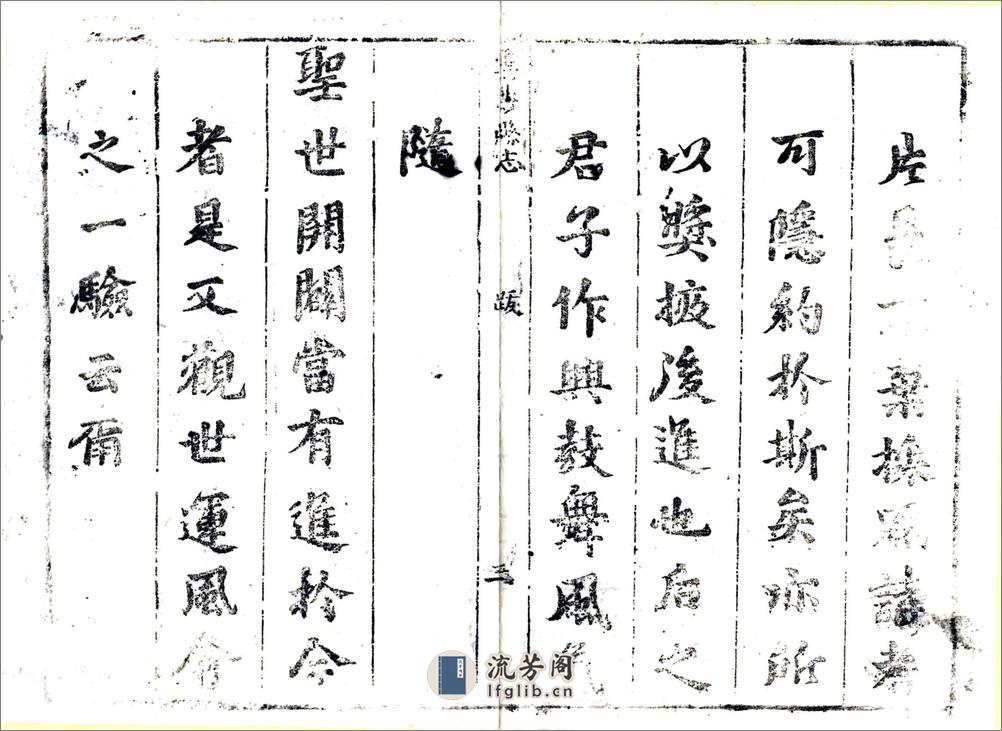 片長一採風者
可隱約於斯矣亦所
以獎掖後進也后之
君子作興鼓舞風氣
縣志 跋 三
隨
聖世開闢當有進於今
者是又觀世運風會
之一驗云爾
流芳阁
lfglib.cn